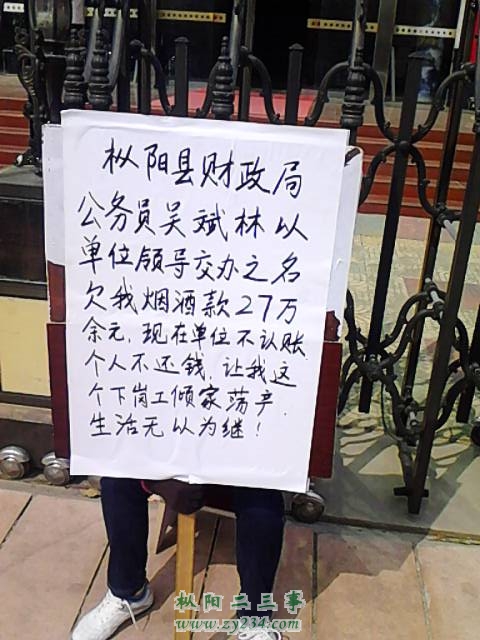 枞阳县财政局
公务员吴斌林以
单位领导交办之名
欠我烟酒款27万
余元,现在单位不认账
个人不还钱,让我这
个下岗工倾家荡产,
生活无以为继!
枞阳二三事
www.zy234.com